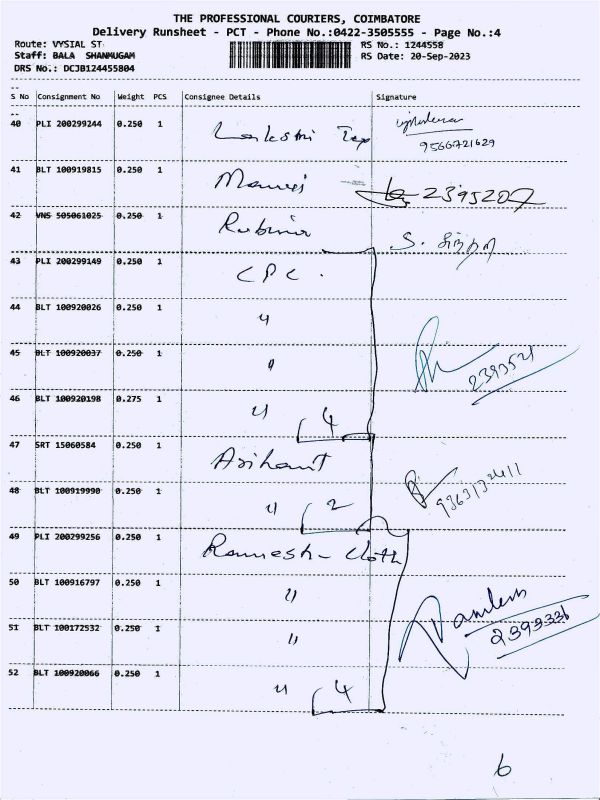 THE PROFESSIONAL COURIERS, COIMBATORE
Delivery Runsheet - PCT - Phone No.:0422-3505555 - Page No.:4
Route: VYSIAL ST RS No.: 1244558
Staff: BALA SHANMUGAM RS Date: 20-Sep-2023
DRS No.: DCJB124455804
S No Consignment No Weight PCS Consignee Details Signature
40 PLI 200299244 0.250 1 Lakshmi Tex
9566721629
41 BLT 100919815 0.250 1 2395207
42 VNS 505061025 0.250 1 Rubina S.
43 PLI 200299149 0.250 1 CPC.
44 BLT 100920026 0.250 1 "
45 BLT 100920037 0.250 1 " 2393521
46 BLT 100920198 0.275 1 " 4
47 SRT 15060584 0.250 1 Arihant
48 BLT 100919990 0.250 1 " 2
49 PLI 200299256 0.250 1 Ramesh Cloth
50 BLT 100916797 0.250 1 "
51 BLT 100172532 0.250 1 " 2393331
52 BLT 100920066 0.250 1 " 4
6